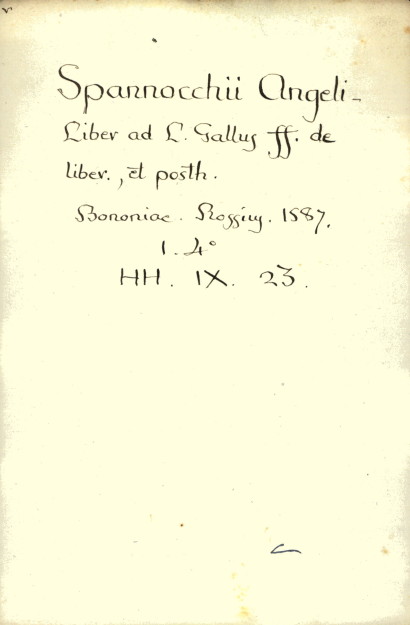 Spannocchii Angeli-
Liber ad L. Gallus ff. de
liber., et posth.
Bononiae. Rossius. 1587.
1. 4°
HH. IX. 23.